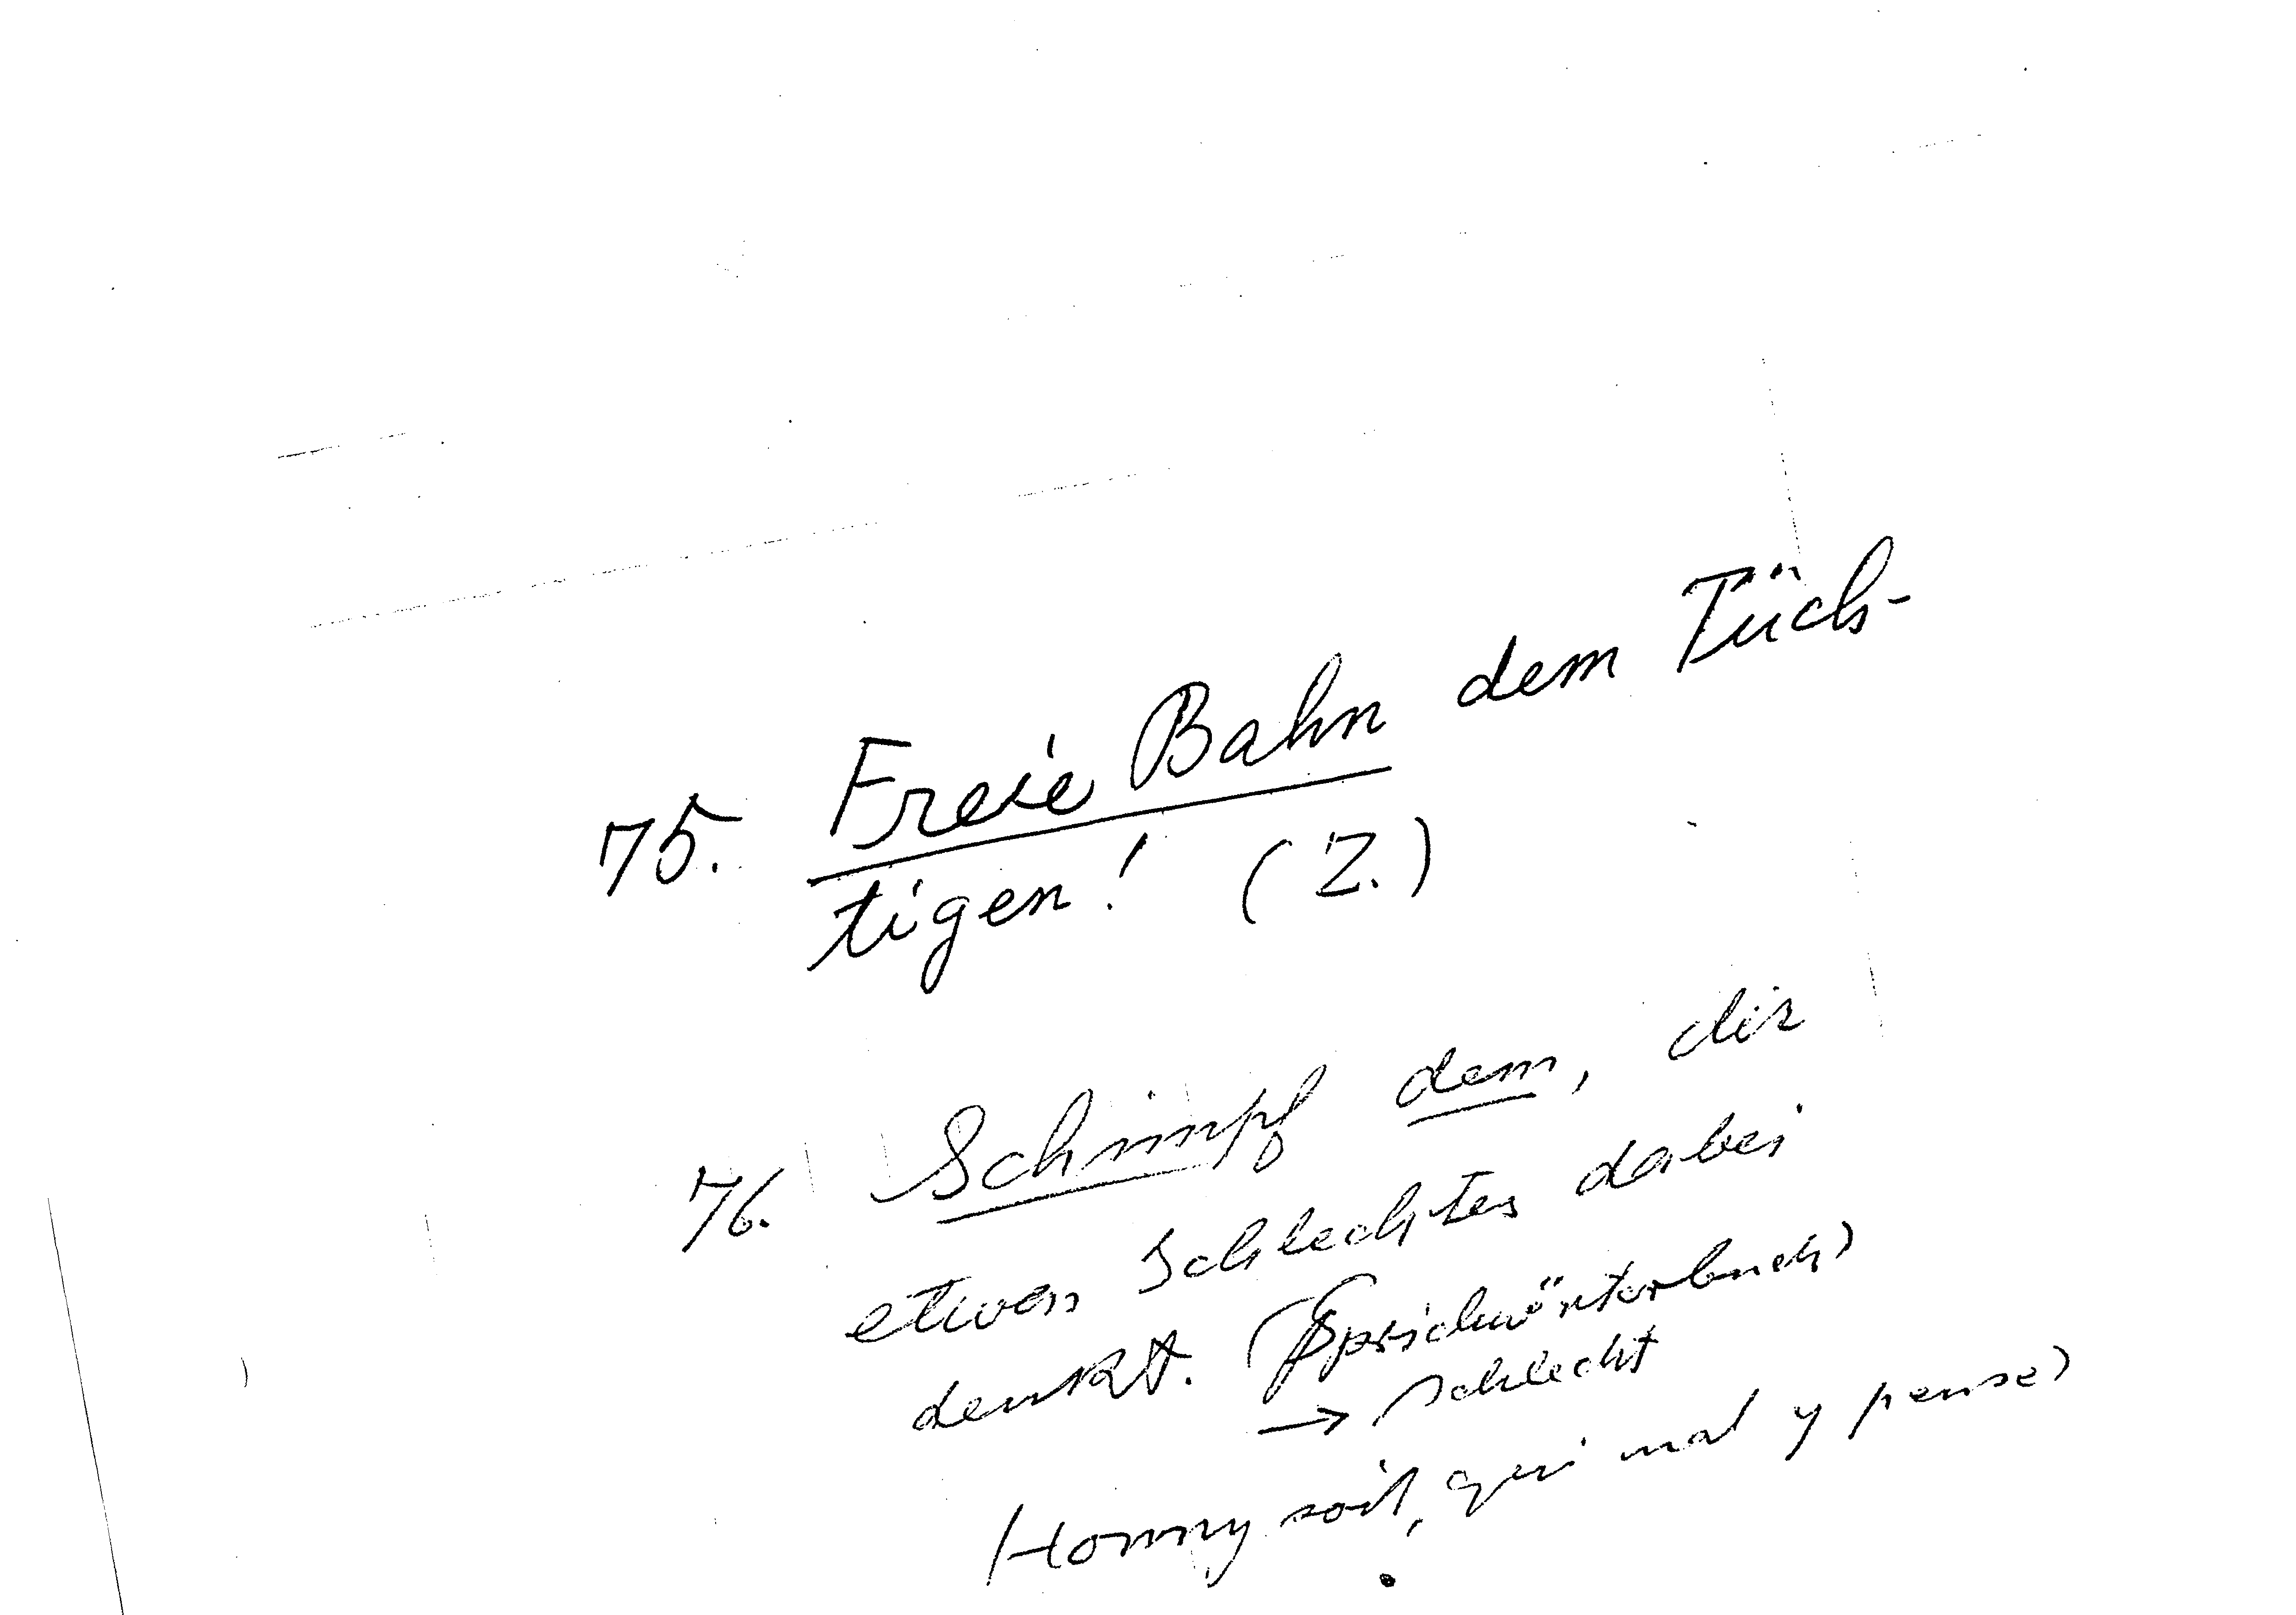 75. Freie Bahn dem Tüch-
tigen! (Z.)
76. Schimpf dem, dir
etwas Schlechtes dabei
denkt. (Sprichwörterbuch)
→ schlecht
Honny soit, qui mal y pense)